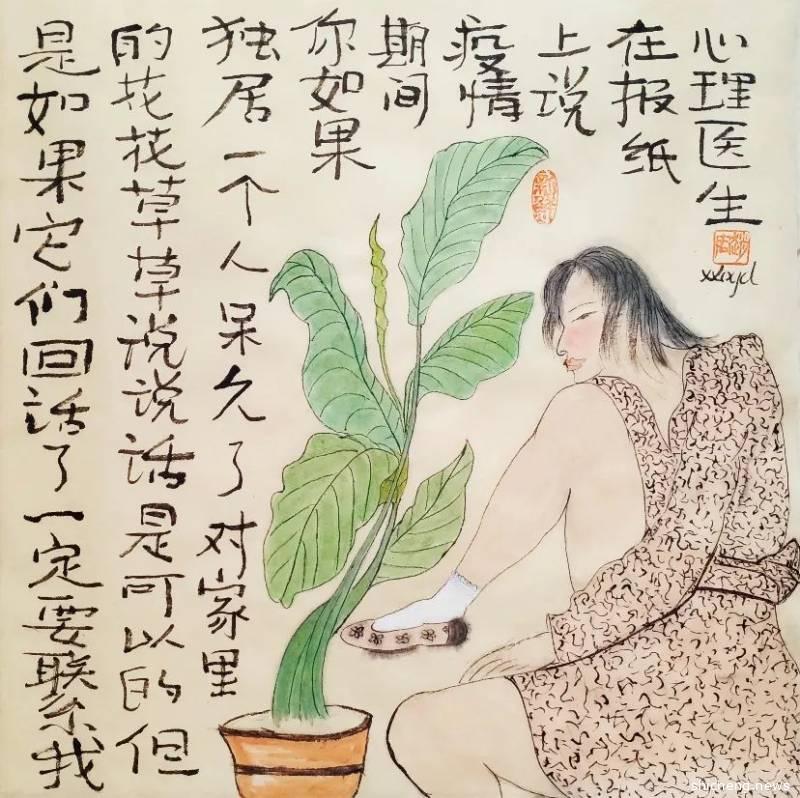 心理医生
在报纸
上说
疫情
期间
你如果
独居一个人呆久了对家里
的花花草草说说话是可以的但
是如果它们回话了一定要联系我
shicheng.news